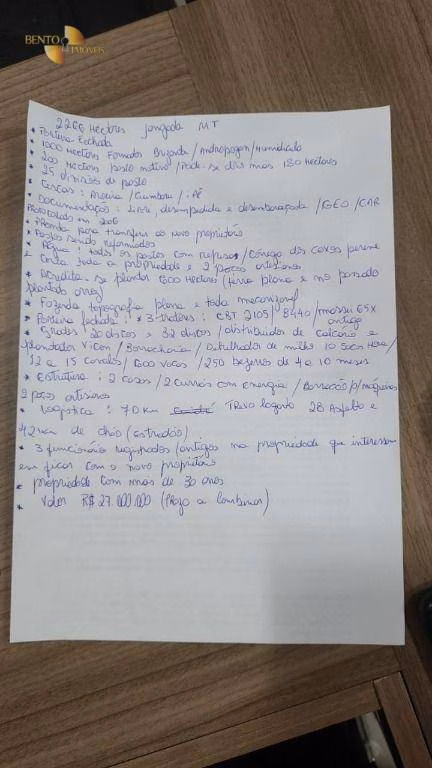 BENTO IMÓVEIS
2266 Hectares Jangada MT
* Porteira Fechada
* 1000 Hectares Formados Brizanta / Andropogon / Humidicola
* 200 Hectares pasto nativo / Pode-se abrir mais 180 Hectares
* 25 divisões de pasto
* Cercas: Aroeira / / ipê
* Documentação: Livre desimpedida e desembaraçada / GEO / CAR
Protocolado em
* Pronta para transferir ao novo proprietário
* Pastos sendo reformados
* Água: todos os pastos com represas / córrego dos cavos perene
e corta toda a propriedade e 2 poços artesianos
* Acredita-se plantar 600 Hectares (terra plana e no passado
plantado arroz)
* Fazenda topografia plana e toda mecanizável
* Porteira fechada: * 3 tratores: CBT 2105 / 8440 / massei 65x
antigo
* Grades: 20 discos e 32 discos / distribuidor de calcário e
plantador Vicon / Borracharia / Debulhador de milho 10 sacos Hora /
12 a 15 cavalos / 600 vacas / 250 bezerros de 4 a 10 meses
* Estrutura: 2 casas / 2 currais com energia / Barracão p/ máquinas
2 poços artesianos
* Logística: 70 km Trevo lagarto 28 Asfalto e
42 km de chão (estradão)
* 3 funcionários registrados / antigos na propriedade que interessam
em ficar com o novo proprietário
* propriedade com mais de 30 anos
* Valor R$ 27.000.000 (Prazo a combinar)